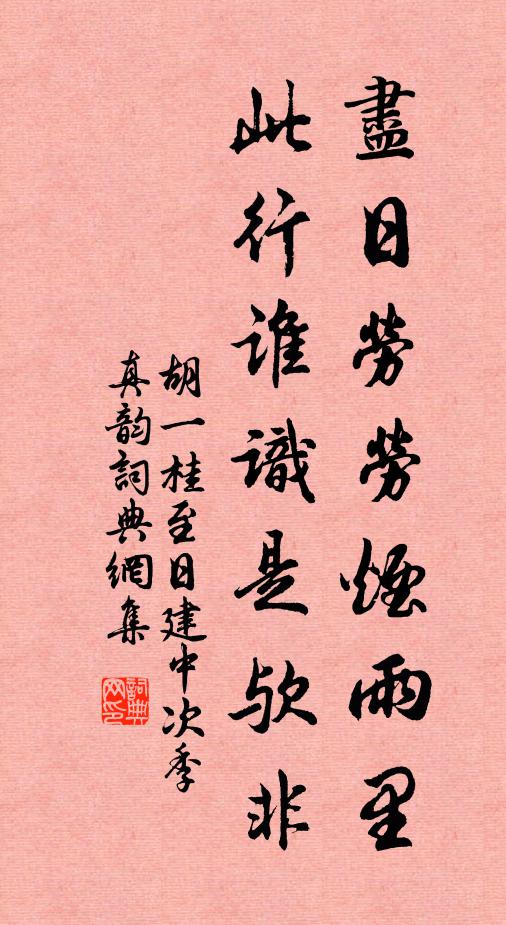 盡日勞勞煙雨里
此行誰識是歟非
胡一桂至日建中次季
真韵詞典網集
詞典網印